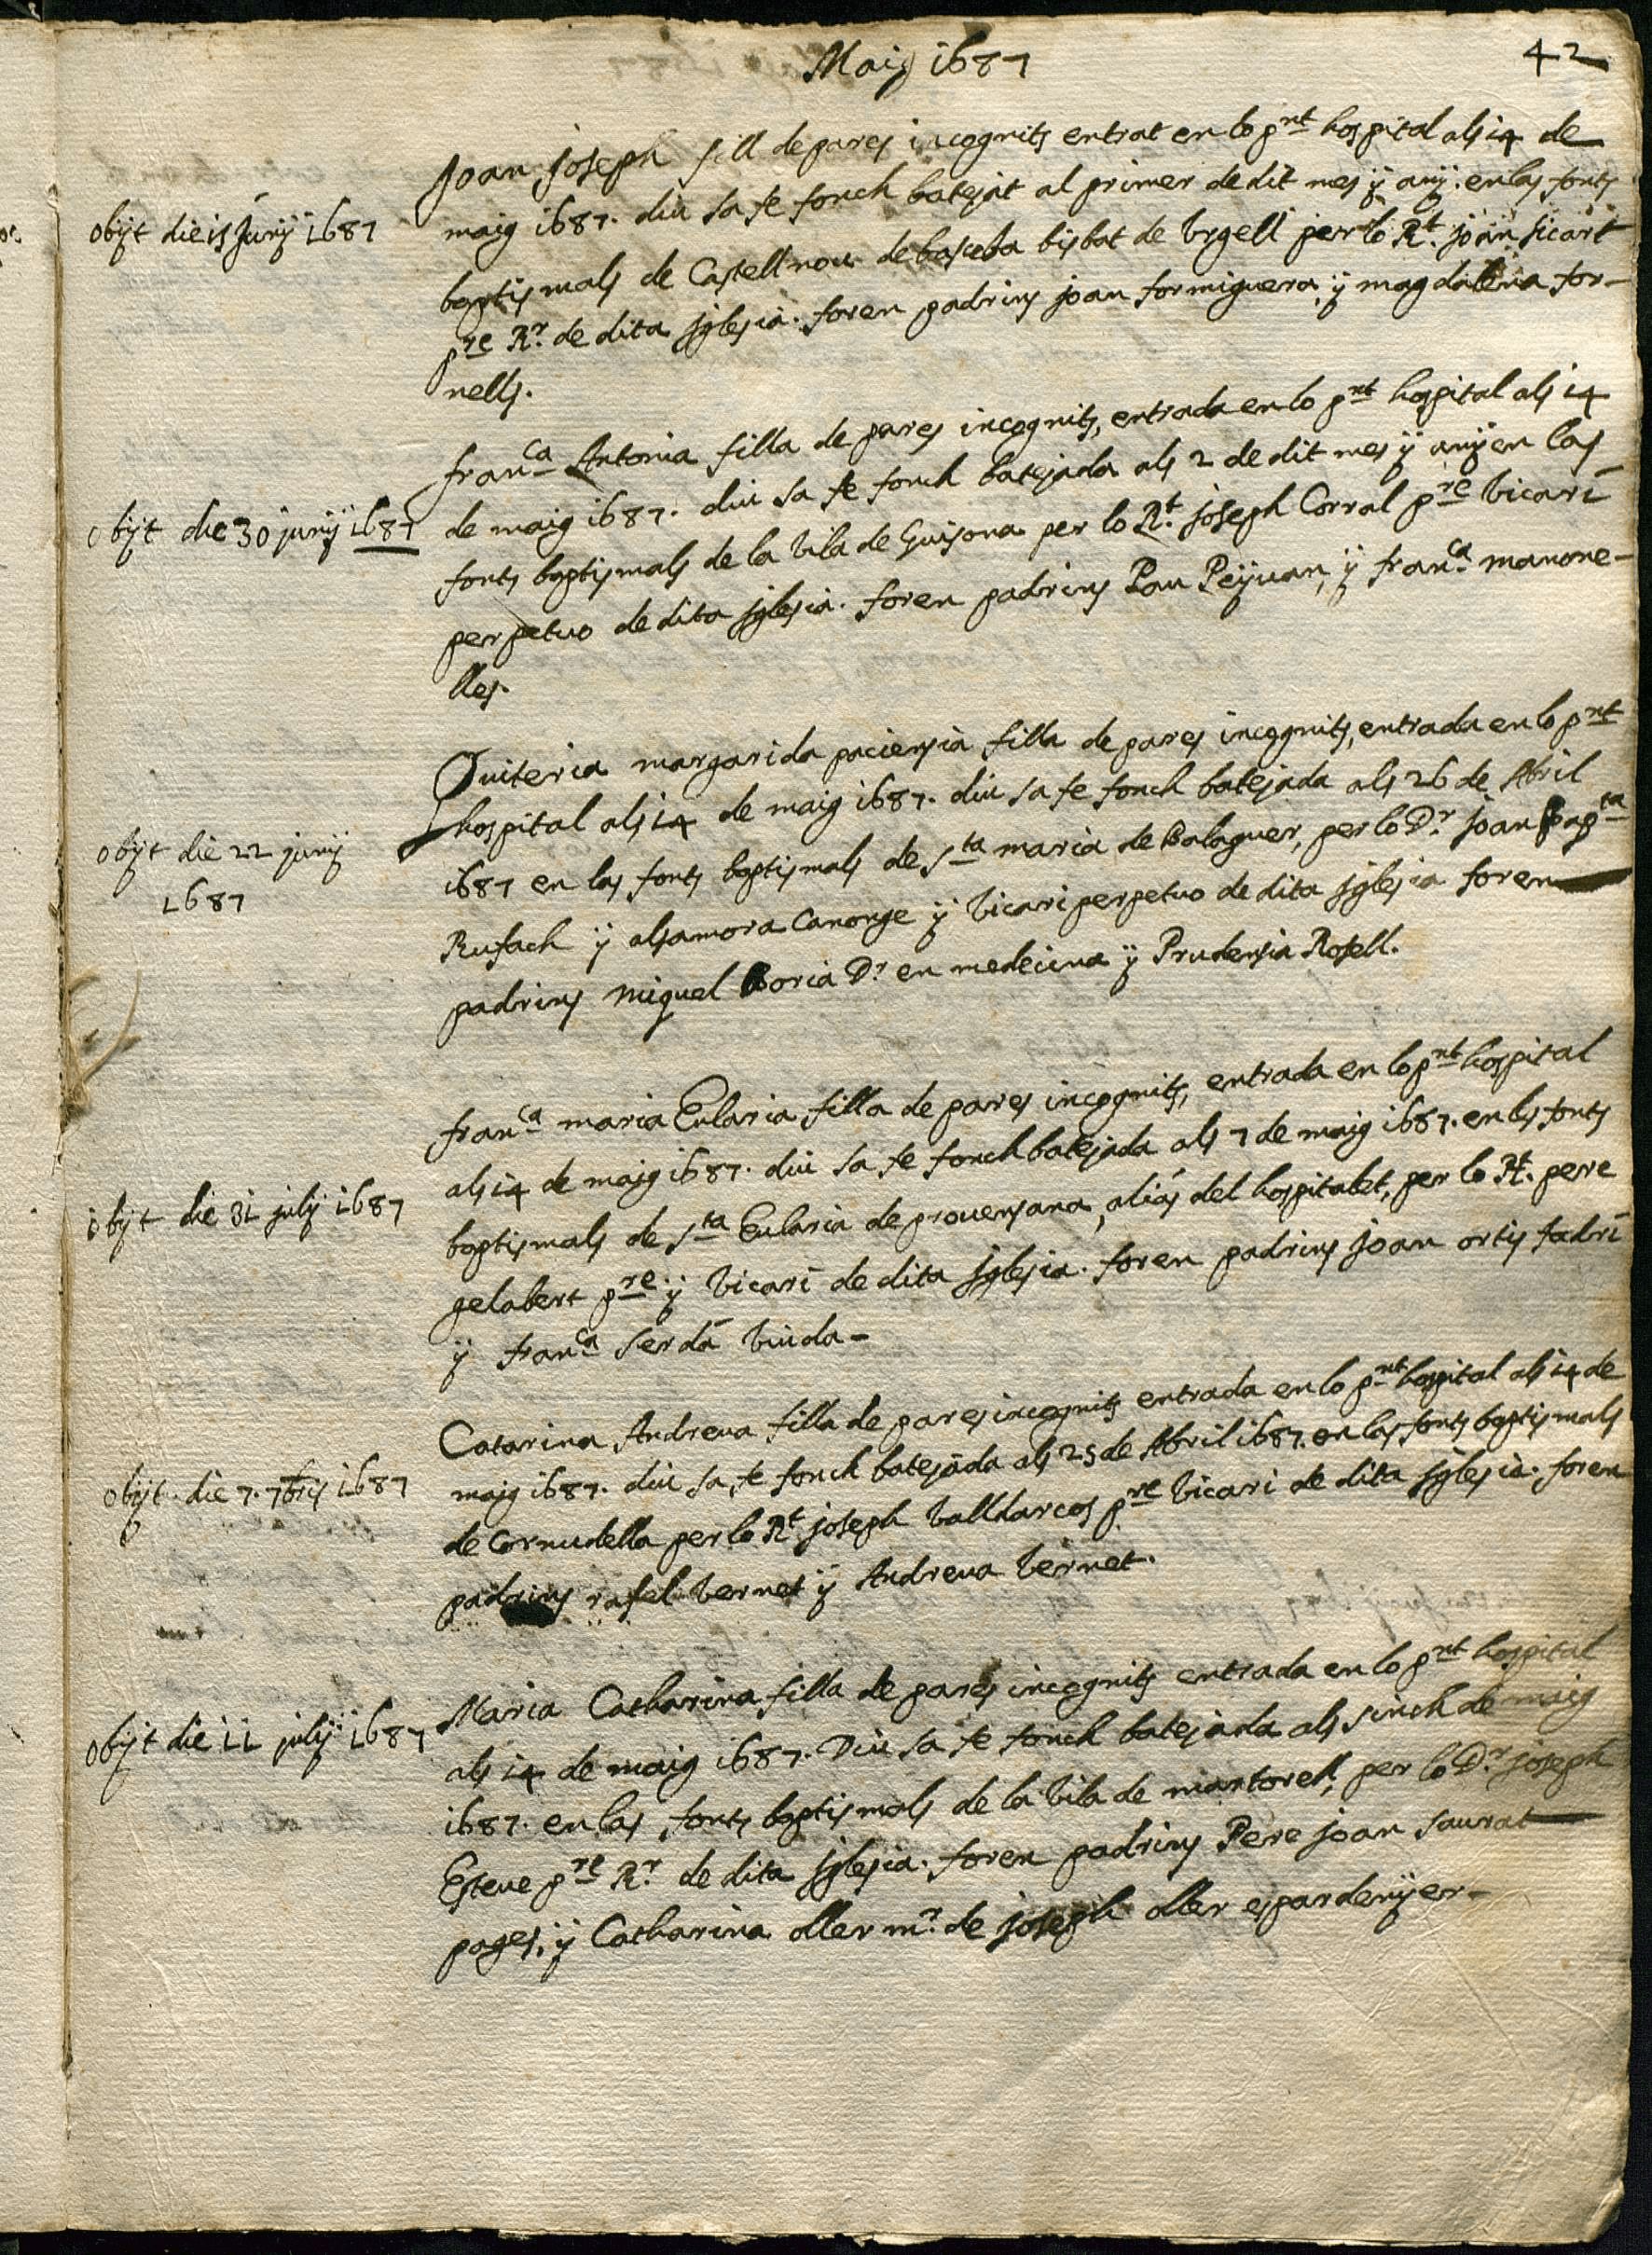 Maig 1687
42
Joan, Joseph fill de pares incognits entrat en lo pnt hospital als 14 de
obijt die 15 Junij 1687
maig 1687. diu sa fe fonch batejat al primer de dit mes ÿ anÿ. en las fonts
baptismals de Castellnou de bascela bisbat de Vrgell per lo Rt. joan sicart
pre Rr. de dita Jglesia. foren padrins joan formiguera, ÿ magdalena for-
nells.
franca Antonia filla de pares incognits, entrada en lo pnt hospital als 14
obijt die 30 junij 1687
de maig 1687. diu sa fe fonch batejada als 2 de dit mes ÿ anÿ en las
fonts baptismals de la Vila de Guisona per lo Rt. joseph Corral pre Vicari
perpetuo de dita Jglesia. foren padrins Pau Peÿuan, ÿ franca manone-
lles.
Quiteria margarida paciensia filla de pares incognits, entrada en lo pnt
obijt die 22 junij
1687
hospital als 14 de maig 1687. diu sa fe fonch batejada als 26 de Abril
1687 en las fonts baptismals de sta maria de Balaguer, per lo Dr. joan Bapta
Rufach ÿ alsamora Canonge ÿ Vicari perpetuo de dita Jglesia foren
padrins miquel Boria Dr. en medecina ÿ Prudensia Rosell.
franca maria Eularia, filla de pares incognits, entrada en lo pnt hospital
obijt die 31 julij 1687
als 14 de maig 1687. diu sa fe fonch batejada als 7 de maig 1687. en las fonts
baptismals de sta Eularia de prouensana, aliás del hospitalet, per lo Rt. pere
gelabert pre ÿ Vicari de dita Jglesia. foren padrins joan ortis fadri
ÿ franca serdá viuda-
Catarina Andreua filla de pares incognits entrada en lo pnt hospital als 14 de
obijt. die 7. 7bris 1687
maig 1687. diu sa fe fonch batejada als 25 de Abril 1687. en las fonts baptismals
de Cornudella per lo Rt. joseph Valldarcos pre Vicari de dita Jglesia. foren
padrins rafel Vernet ÿ Andreua Vernet.
Maria Catharina filla de pares incognits entrada en lo pnt hospital
obijt die 11 julij 1687
als 14 de maig 1687. Diu sa fe fonch batejada als sinch de maig
1687. en las fonts baptismals de la Vila de martorell, per lo Dr. joseph
Esteue pre Rr. de dita Jglesia. foren padrins Pere joan saurat
pages, ÿ Catharina oller mr. de joseph oller espardenÿer-